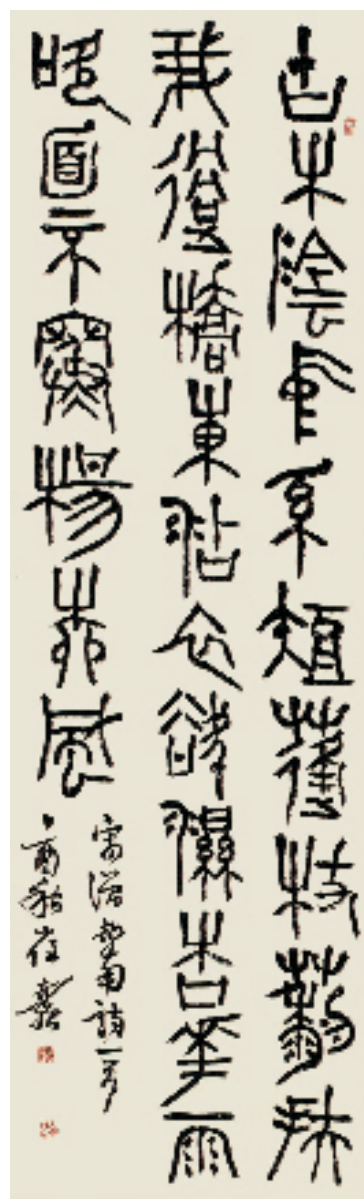 古木陰中系短蓬杖藜扶
我過橋東沾衣欲濕杏花雨
吹面不寒楊柳風
宋僧志南詩一首